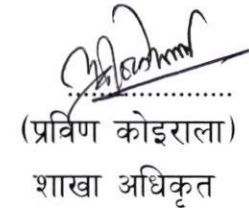 (प्रविण कोइराला)
शाखा अधिकृत